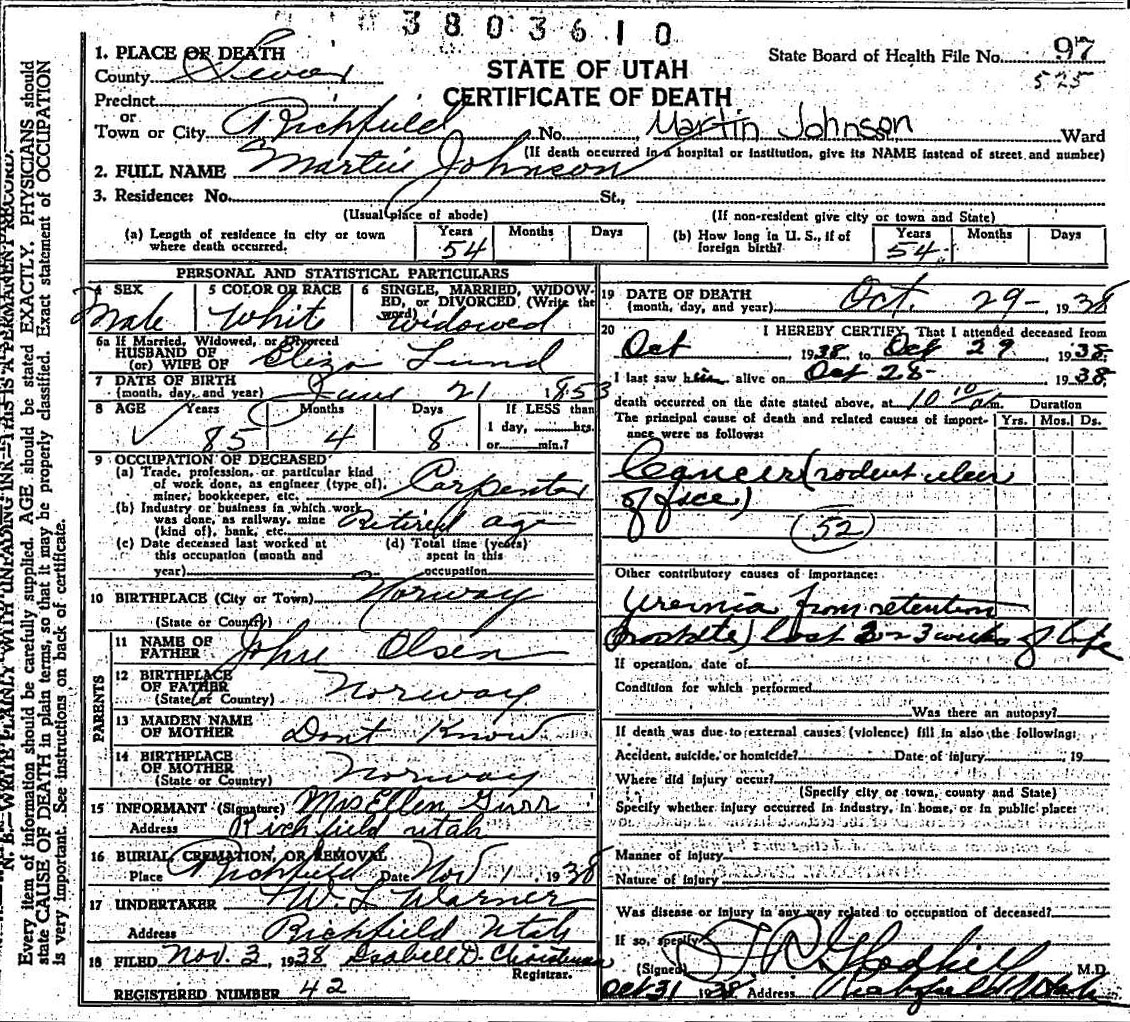 3803610
1. PLACE OF DEATH
County Sevier
State Board of Health File No. 97
525
STATE OF UTAH
CERTIFICATE OF DEATH
Precinct
or
Town or City Richfield No. Martin Johnson Ward
(If death occurred in a hospital or institution, give its NAME instead of street and number)
2. FULL NAME Martin Johnson
3. Residence: No. St.,
(Usual place of abode) (If non-resident give city or town and State)
(a) Length of residence in city or town where death occurred. Years 54 Months Days
(b) How long in U. S., if of foreign birth? Years 54 Months Days
PERSONAL AND STATISTICAL PARTICULARS
4 SEX Male
5 COLOR OR RACE White
6 SINGLE, MARRIED, WIDOWED, or DIVORCED (Write the word) Widowed
6a If Married, Widowed, or Divorced
HUSBAND OF
(or) WIFE OF Eliza Lund
7 DATE OF BIRTH
(month, day, and year) June 21 1853
8 AGE Years 85 Months 4 Days 8 If LESS than
1 day, hrs.
or min.?
9 OCCUPATION OF DECEASED
(a) Trade, profession, or particular kind
of work done, as engineer (type of),
miner, bookkeeper, etc. Carpenter
(b) Industry or business in which work
was done, as railway, mine
(kind of), bank, etc. Retired age
(c) Date deceased last worked at
this occupation (month and
year)
(d) Total time (years)
spent in this
occupation
10 BIRTHPLACE (City or Town) Norway
(State or Country)
PARENTS
11 NAME OF
FATHER John Olsen
12 BIRTHPLACE
OF FATHER Norway
(State or Country)
13 MAIDEN NAME
OF MOTHER Dont Know
14 BIRTHPLACE
OF MOTHER
(State or Country) Norway
15 INFORMANT (Signature) Mrs Ellen Gurr
Address Richfield Utah
16 BURIAL, CREMATION, OR REMOVAL
Place Richfield Date Nov 1, 1938
17 UNDERTAKER W L Warner
Address Richfield Utah
18 FILED Nov. 3, 1938 Isabell D.
Registrar.
REGISTERED NUMBER 42
19 DATE OF DEATH
(month, day, and year) Oct. 29- 1938
20 I HEREBY CERTIFY, That I attended deceased from
Oct 1938, to Oct 29 1938.
I last saw him alive on Oct 28- 1938
death occurred on the date stated above, at 10 10/a m. Duration
The principal cause of death and related causes of importance were as follows: Yrs. Mos. Ds.
Cancer (rodent ulcer
of face)
52
Other contributory causes of importance:
Uremia from retention
(prostate) last 2 or 3 weeks of life
If operation, date of
Condition for which performed
Was there an autopsy?
If death was due to external causes (violence) fill in also the following:
Accident, suicide, or homicide? Date of injury 19
Where did injury occur?
(Specify city, town, county and State)
Specify whether injury occurred in industry, in home, or in public place:
Manner of injury
Nature of injury
Was disease or injury in any way related to occupation of deceased?
If so, specify
(Signed) M.D.
Oct 31 1938 Address Richfield Utah
N. B.—WRITE PLAINLY WITH UNFADING INK—THIS IS A PERMANENT RECORD.
Every item of information should be carefully supplied. AGE should be stated EXACTLY. PHYSICIANS should
state CAUSE OF DEATH in plain terms, so that it may be properly classified. Exact statement of OCCUPATION
is very important. See instructions on back of certificate.